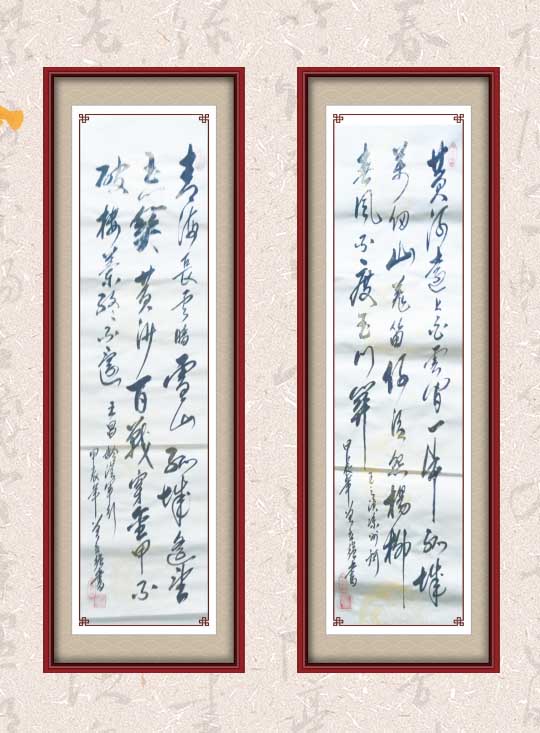 黄河遠上白雲間一片孤城
萬仞山羌笛何須怨楊柳
春風不度玉门关
王之涣凉州詞
甲辰年
書
青海長云暗雪山孤城遥望
玉门關黄沙百戰穿金甲不
破楼蘭终不還
王昌龄從軍行
甲辰年
書